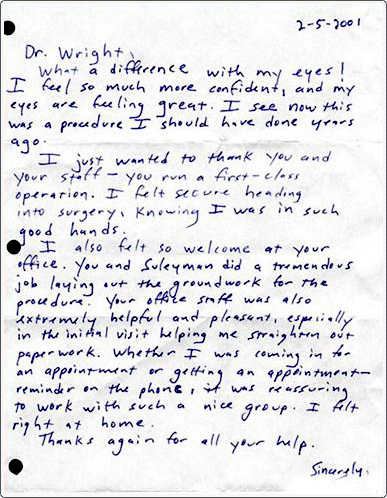 2-5-2001
Dr. Wright,
What a difference with my eyes!
I feel so much more confident, and my
eyes are feeling great. I see now this
was a procedure I should have done years
ago.
I just wanted to thank you and
your staff – you run a first-class
operation. I felt secure heading
into surgery, knowing I was in such
good hands.
I also felt so welcome at your
office. You and Suleyman did a tremendous
job laying out the groundwork for the
procedure. Your office staff was also
extremely helpful and pleasant, especially
in the initial visit helping me straighten out
paperwork. Whether I was coming in for
an appointment or getting an appointment-
reminder on the phone, it was reassuring
to work with such a nice group. I felt
right at home.
Thanks again for all your help.
Sincerely,